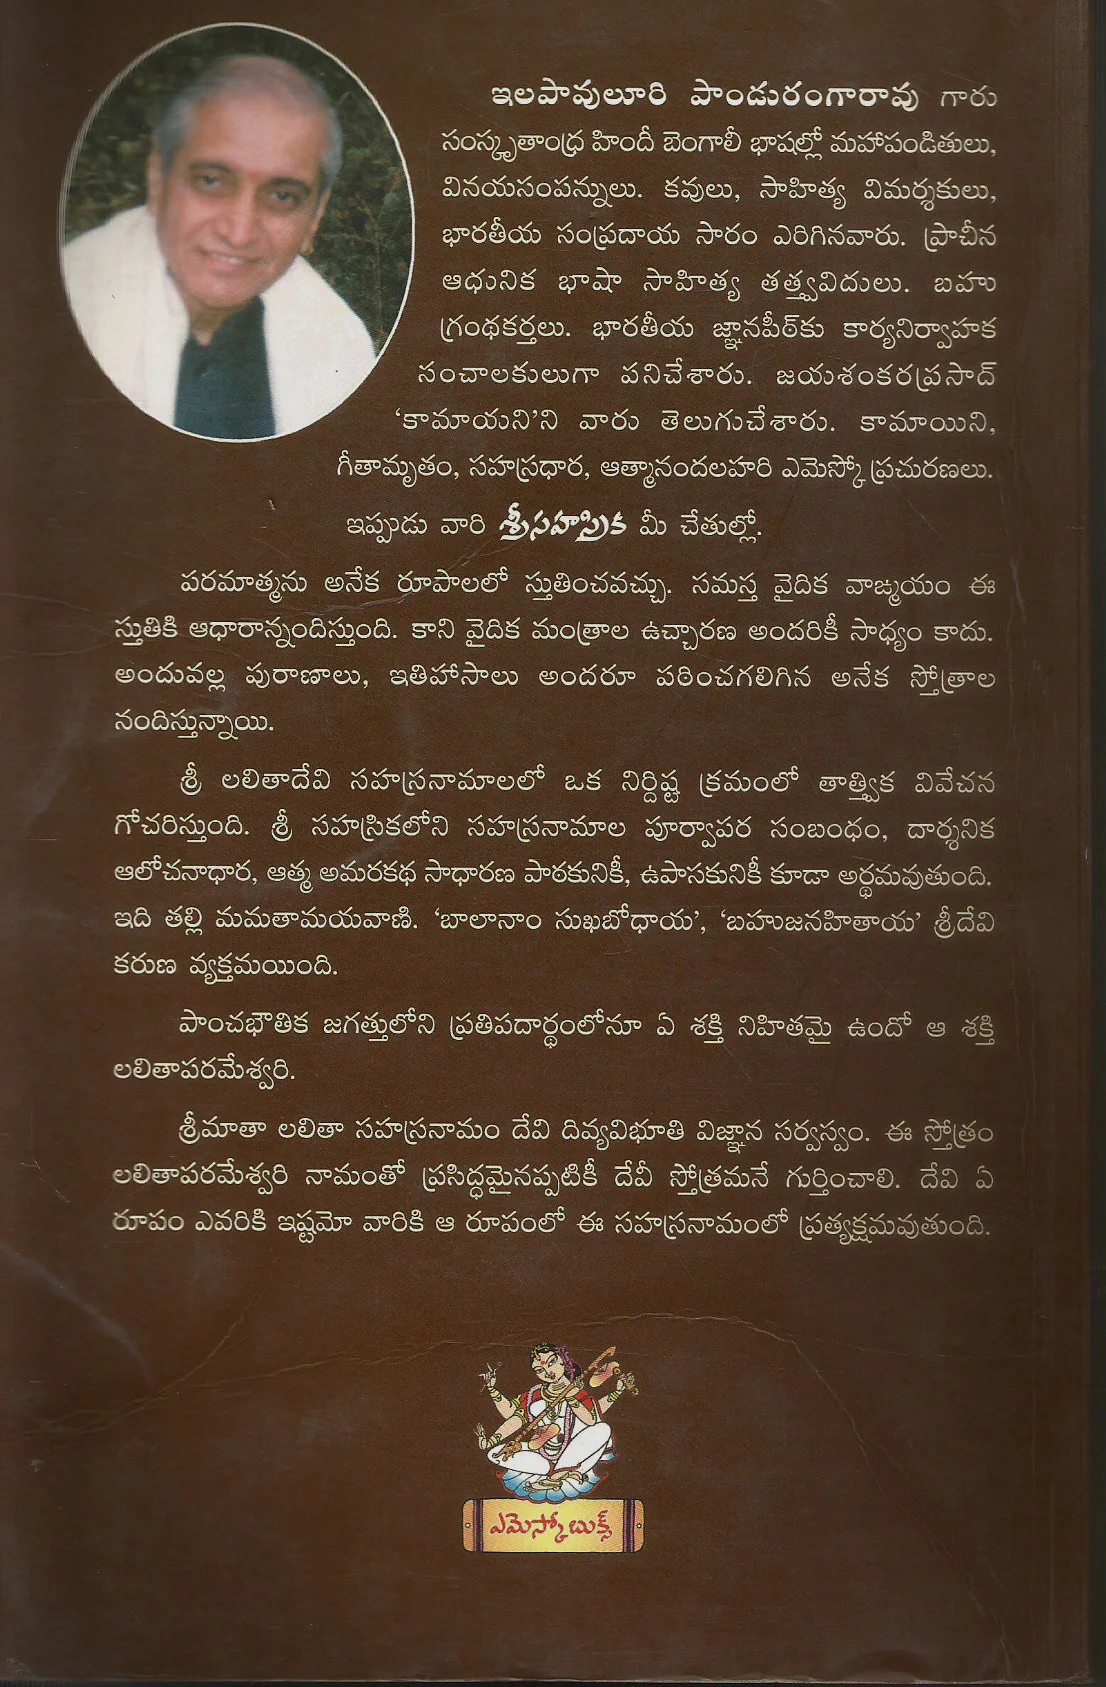 ఇలపావులూరి పాండురంగారావు గారు
సంస్కృతాంధ్ర హిందీ బెంగాలీ భాషల్లో మహాపండితులు,
వినయసంపన్నులు. కవులు, సాహిత్య విమర్శకులు,
భారతీయ సంప్రదాయ సారం ఎరిగినవారు. ప్రాచీన
ఆధునిక భాషా సాహిత్య తత్త్వవిదులు. బహు
గ్రంథకర్తలు. భారతీయ జ్ఞానపీఠ్‌కు కార్యనిర్వాహక
సంచాలకులుగా పనిచేశారు. జయశంకరప్రసాద్
‘కామాయని’ని వారు తెలుగుచేశారు. కామాయిని,
గీతామృతం, సహస్రధార, ఆత్మానందలహరి ఎమెస్కో ప్రచురణలు.
ఇప్పుడు వారి శ్రీసహస్రిక మీ చేతుల్లో.
పరమాత్మను అనేక రూపాలలో స్తుతించవచ్చు. సమస్త వైదిక వాఙ్మయం ఈ
స్తుతికి ఆధారాన్నందిస్తుంది. కాని వైదిక మంత్రాల ఉచ్చారణ అందరికీ సాధ్యం కాదు.
అందువల్ల పురాణాలు, ఇతిహాసాలు అందరూ పఠించగలిగిన అనేక స్తోత్రాల
నందిస్తున్నాయి.
శ్రీ లలితాదేవి సహస్రనామాలలో ఒక నిర్దిష్ట క్రమంలో తాత్త్విక వివేచన
గోచరిస్తుంది. శ్రీ సహస్రికలోని సహస్రనామాల పూర్వాపర సంబంధం, దార్శనిక
ఆలోచనాధార, ఆత్మ అమరకథ సాధారణ పాఠకునికీ, ఉపాసకునికీ కూడా అర్థమవుతుంది.
ఇది తల్లి మమతామయవాణి. ‘బాలానాం సుఖబోధాయ’, ‘బహుజనహితాయ’ శ్రీదేవి
కరుణ వ్యక్తమయింది.
పాంచభౌతిక జగత్తులోని ప్రతిపదార్థంలోనూ ఏ శక్తి నిహితమై ఉందో ఆ శక్తి
లలితాపరమేశ్వరి.
శ్రీమాతా లలితా సహస్రనామం దేవి దివ్యవిభూతి విజ్ఞాన సర్వస్వం. ఈ స్తోత్రం
లలితాపరమేశ్వరి నామంతో ప్రసిద్ధమైనప్పటికీ దేవీ స్తోత్రమనే గుర్తించాలి. దేవి ఏ
రూపం ఎవరికి ఇష్టమో వారికి ఆ రూపంలో ఈ సహస్రనామంలో ప్రత్యక్షమవుతుంది.
ఎమెస్కో బుక్స్